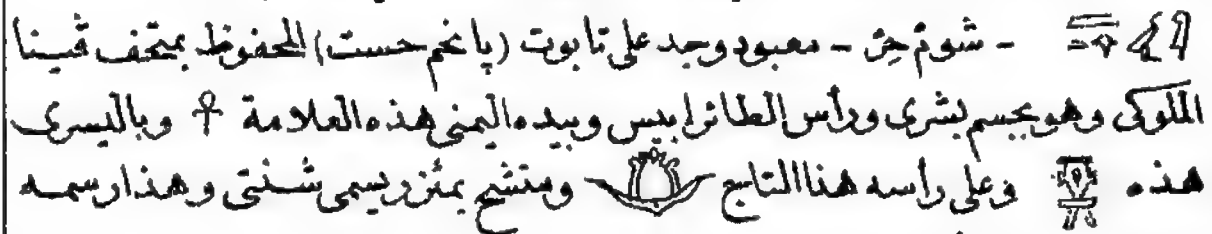 - شو م حن - معبود وجد على تابوت (پانخم حست) المحفوظ بمتحف ڤينا
الملوكى وهو بجسم بشرى ورأس الطائر ابيس وبيده اليمنى هذه العلامة ☥ وباليسرى
هذه وعلى راسه هذا التاج ومتشح بمئزر يسمى شنتى وهذا رسمه